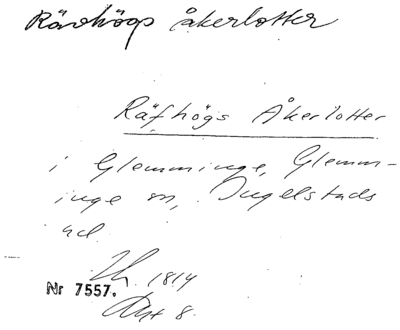 Rävhögs åkerlotter
Räfhögs Åkerlotter
i Glemminge, Glemm-
inge sn, Ingelstads
hd.
1814
Nr 7557.
Akt 8.